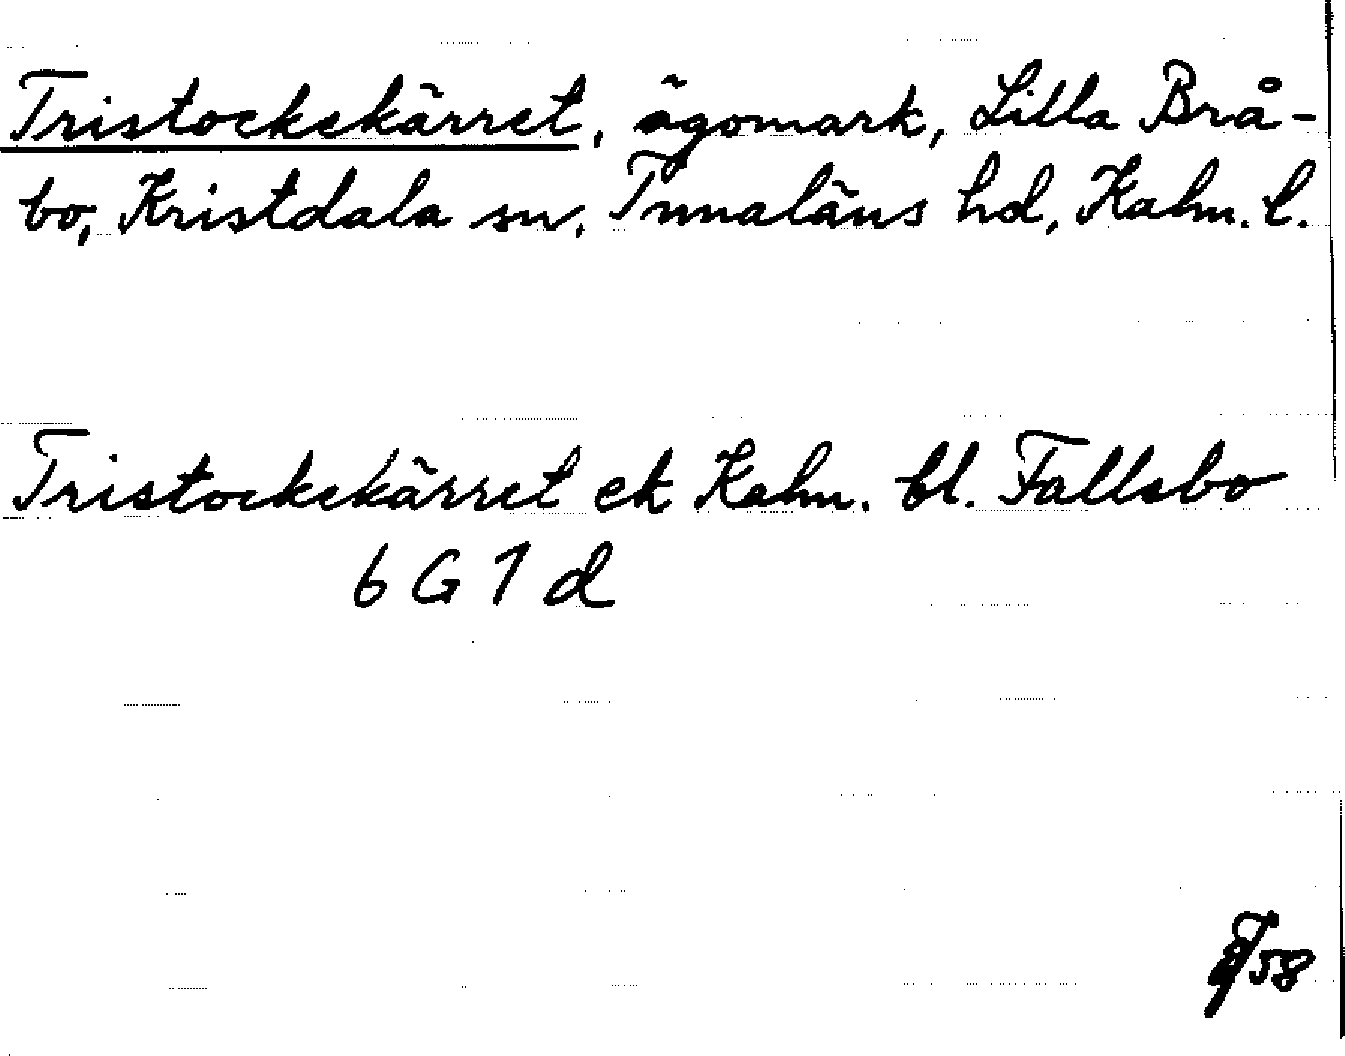 Tristockekärret, ägomark, Lilla Brå-
bo, Kristdala sn. Tunaläns hd, Kalm. l.
Tristockekärret ek Kalm. bl. Fallebo
6 G 1 d
58